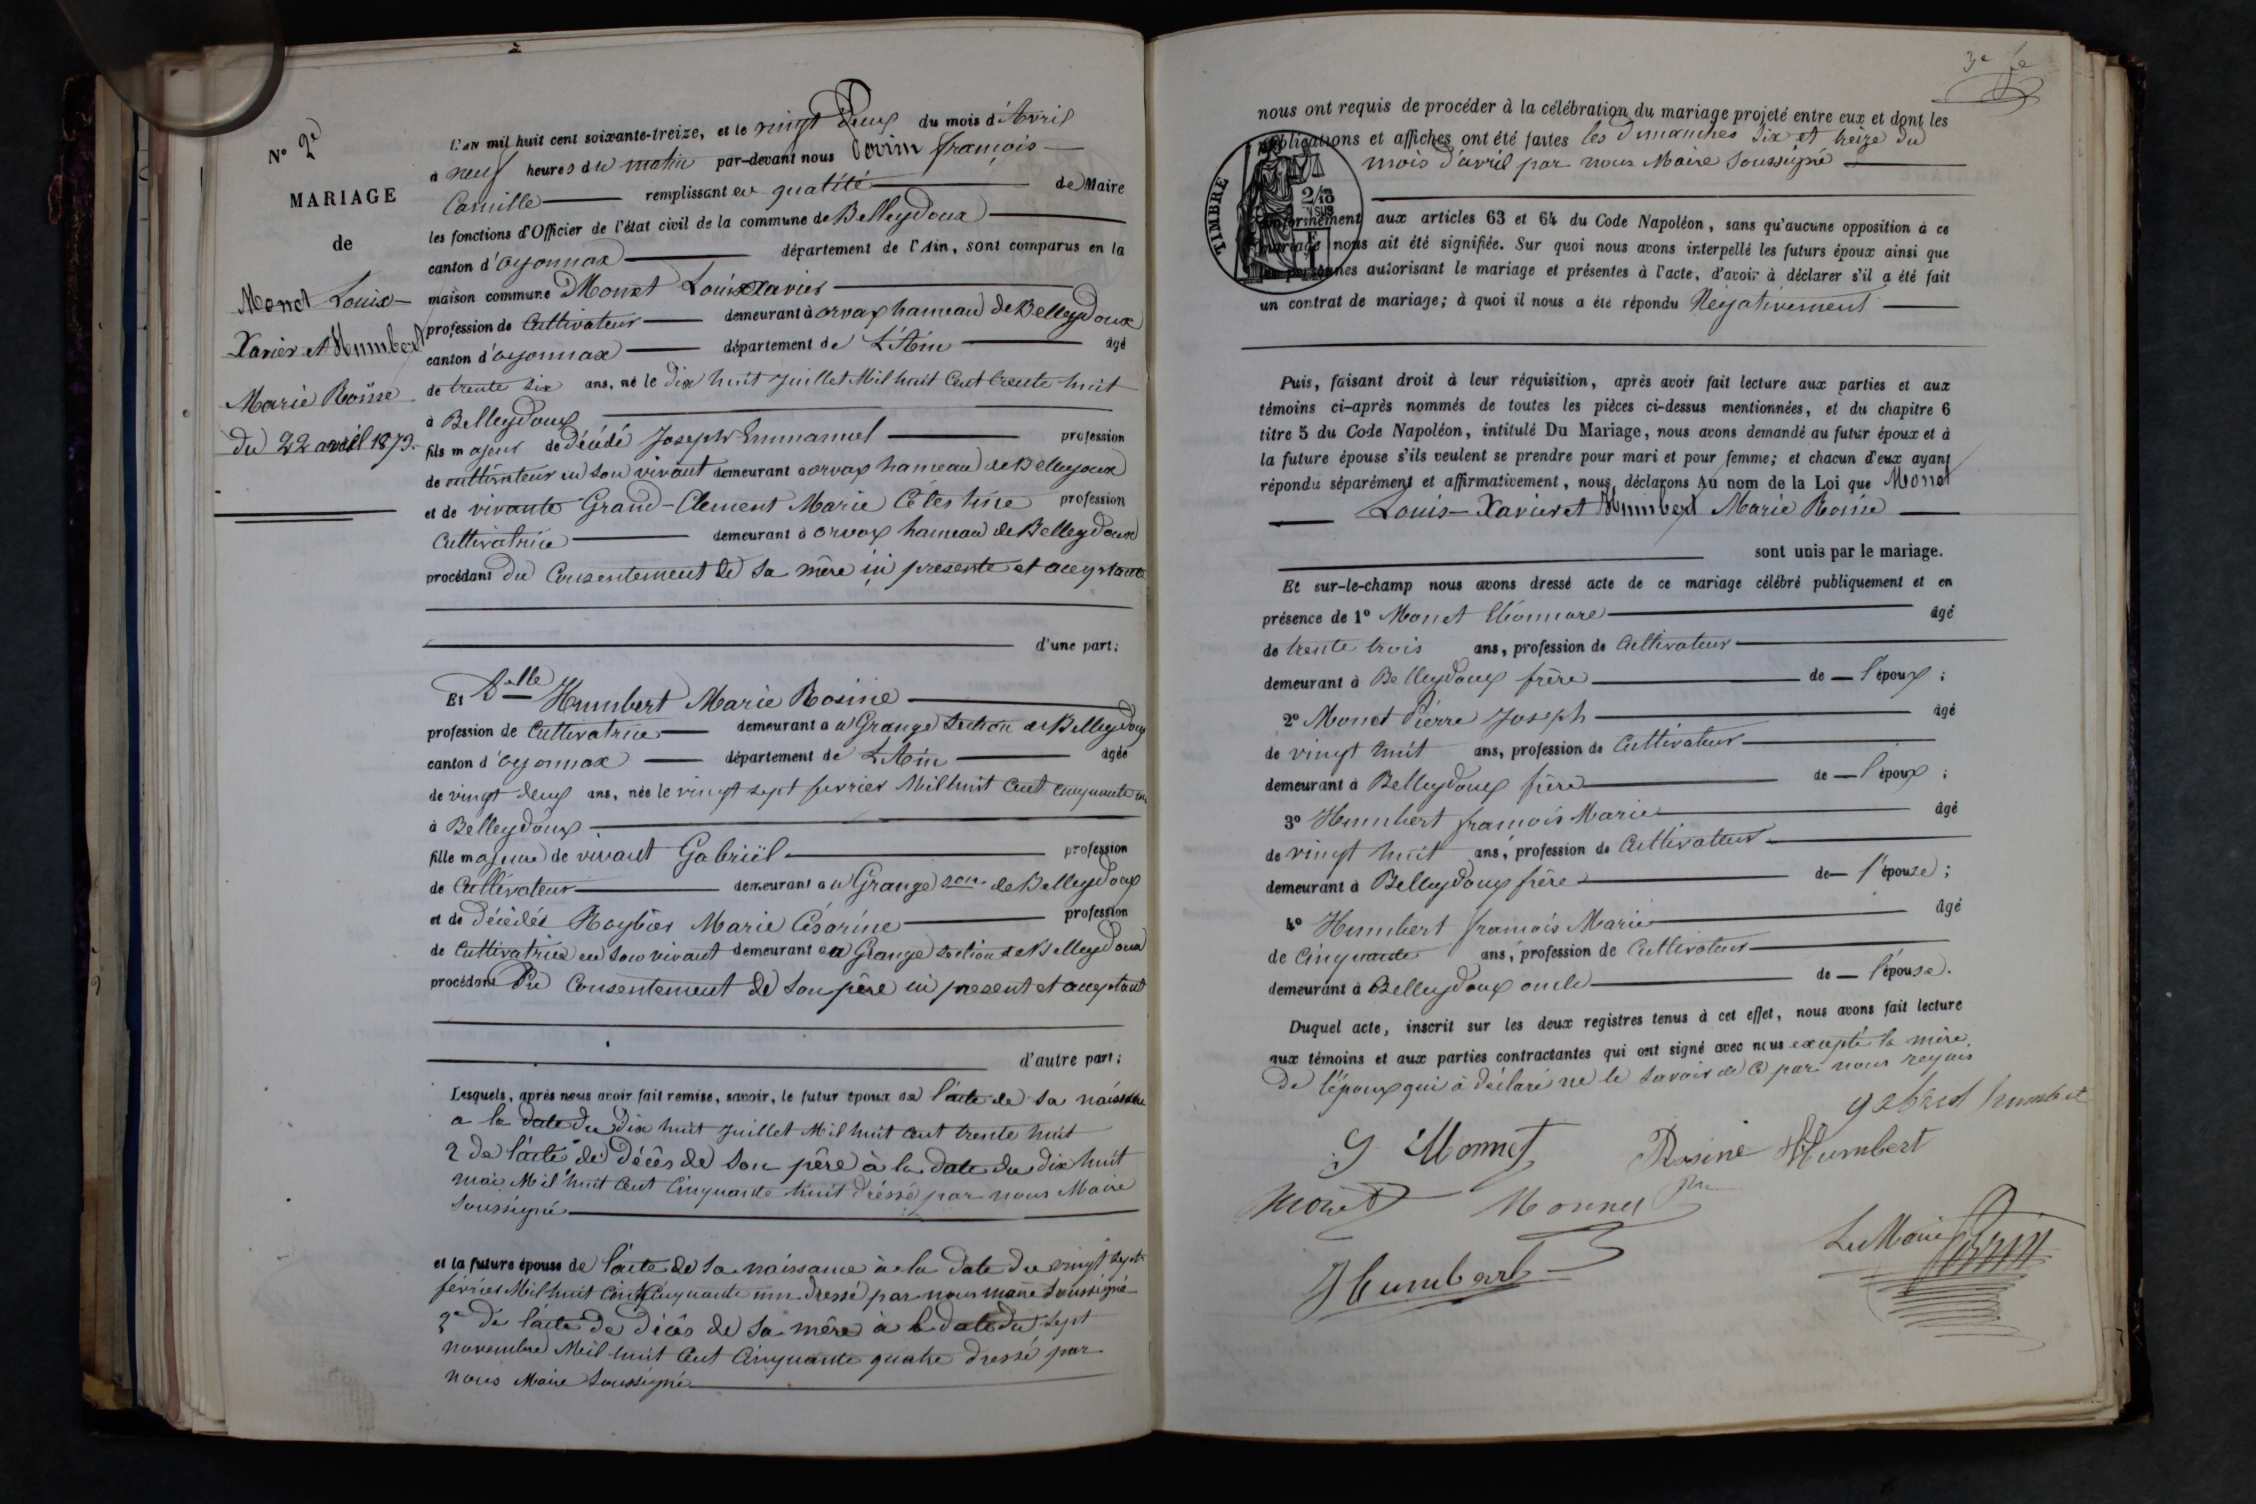 Nº 2e
MARIAGE
de
Monet Louis-
Xavier et Humbert
Marie Rosine
du 22 avril 1873.
L'AN mil huit cent soixante-treize, et le vingt deux du mois d'Avril
à neuf heures du matin par-devant nous François
Camille remplissant en qualité de Maire
les fonctions d'Officier de l'état civil de la commune de Belleydoux
canton d'oyonnax département de l'Ain, sont comparus en la
maison commune Monet Louis Xavier
profession de Cultivateur demeurant à orvax hameau de Belleydoux
canton d'oyonnax département de L'Ain âgé
de trente six ans, né le dix huit Juillet Mil huit Cent trente huit
à Belleydoux
fils majeur de décédé Joseph Emmanuel profession
de cultivateur en son vivant demeurant à orvax hameau de Belleydoux
et de vivante Grand-Clement Marie Célestine profession
Cultivatrice demeurant à orvax hameau de Belleydoux
procédant du Consentement de sa mère ici présente et acceptante
d'une part;
Et Delle Humbert Marie Rosine
profession de Cultivatrice demeurant à a Grange Section de Belleydoux
canton d'oyonnax département de L'Ain âgée
de vingt deux ans, née le vingt sept fevrier Mil huit Cent cinquante un
à Belleydoux
fille majeure de vivant Gabriël profession
de Cultivateur demeurant à a Grange son de Belleydoux
et de décédée Marie Césarine profession
de Cultivatrice en son vivant demeurant à a Grange section de Belleydoux
procédant Du Consentement de son père ici present et acceptant
d'autre part;
Lesquels, après nous avoir fait remise, savoir, le futur époux de l'acte de sa naissance
a la date du dix huit Juillet Mil huit Cent trente huit
2 de l'acte de décès de son père à la date du dix huit
mai Mil huit Cent Cinquante huit dréssé par nous Maire
Soussigné
et la future épouse de l'acte de sa naissance à la date du vingt sept
février Mil huit Cent Cinquante un dressé par nous maire soussigné
2e de l'acte de décès de sa mère à la date du sept
novembre Mil huit Cent Cinquante quatre dressé par
nous Maire soussigné
3e
nous ont requis de procéder à la célébration du mariage projeté entre eux et dont les
publications et affiches ont été faites les dimanches six et treize du
mois d'avril par nous Maire soussigné
TIMBRE
conformément aux articles 63 et 64 du Code Napoléon, sans qu'aucune opposition à ce
mariage nous ait été signifiée. Sur quoi nous avons interpellé les futurs époux ainsi que
les personnes autorisant le mariage et présentes à l'acte, d'avoir à déclarer s'il a été fait
un contrat de mariage; à quoi il nous a été répondu Négativement
Puis, faisant droit à leur réquisition, après avoir fait lecture aux parties et aux
témoins ci-après nommés de toutes les pièces ci-dessus mentionnées, et du chapitre 6
titre 5 du Code Napoléon, intitulé Du Mariage, nous avons demandé au futur époux et à
la future épouse s'ils veulent se prendre pour mari et pour femme; et chacun d'eux ayant
répondu séparément et affirmativement, nous déclarons Au nom de la Loi que Monet
Louis-Xavier et Humbert Marie Rosine
sont unis par le mariage.
Et sur-le-champ nous avons dressé acte de ce mariage célébré publiquement et en
présence de 1º Monet âgé
de trente trois ans, profession de Cultivateur
demeurant à Belleydoux frère de l'époux;
2º Monet Pierre Joseph âgé
de vingt huit ans, profession de Cultivateur
demeurant à Belleydoux frère de l'époux;
3º Humbert françois Marie âgé
de vingt huit ans, profession de Cultivateur
demeurant à Belleydoux frère de l'épouse;
4º Humbert françois Marie âgé
de Cinquante ans, profession de Cultivateur
demeurant à Belleydoux oncle de l'épouse.
Duquel acte, inscrit sur les deux registres tenus à cet effet, nous avons fait lecture
aux témoins et aux parties contractantes qui ont signé avec nous excepté la mère
De l'époux qui à déclaré ne le savoir de ce par nous requis
gabriel humbert
Monnet Rosine Humbert
monet Monnet
Humbert Le Maire